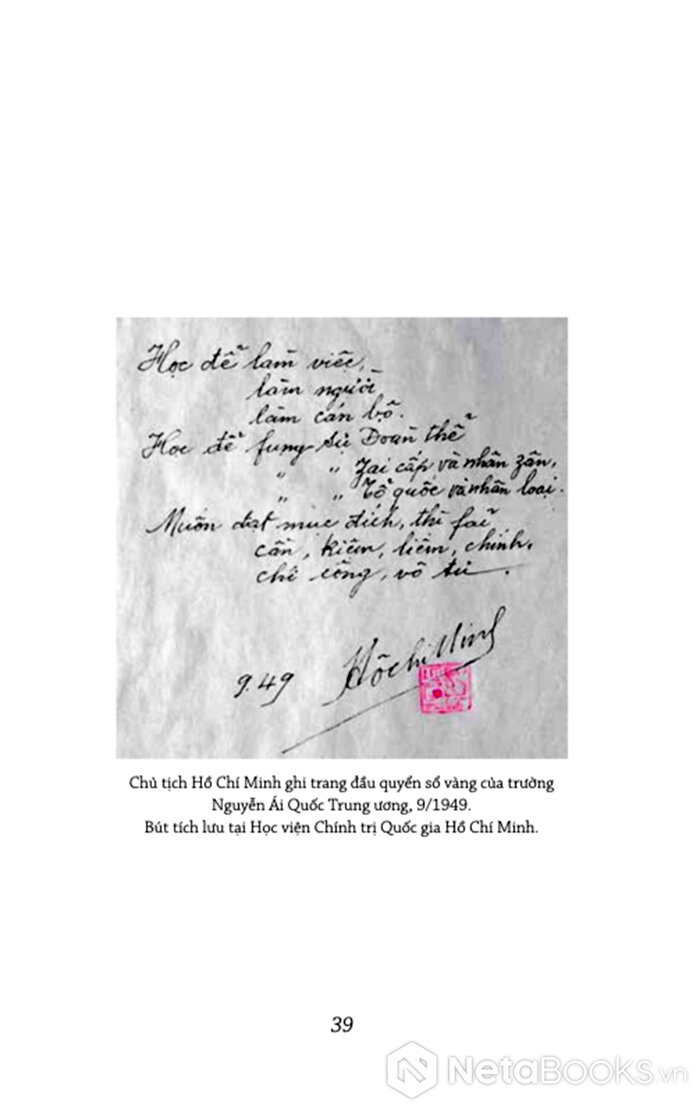 Học để làm việc,
làm người
làm cán bộ.
Học để fụng sự Đoàn thể
" " Zai cấp và nhân zân,
" " Tổ quốc và nhân loại.
Muốn đạt mục đích, thì fải
cần, kiệm, liêm, chính,
chí công, vô tư.
9.49 Hồ Chí Minh
Chủ tịch Hồ Chí Minh ghi trang đầu quyển sổ vàng của trường
Nguyễn Ái Quốc Trung ương, 9/1949.
Bút tích lưu tại Học viện Chính trị Quốc gia Hồ Chí Minh.
39
NetaBooks.vn